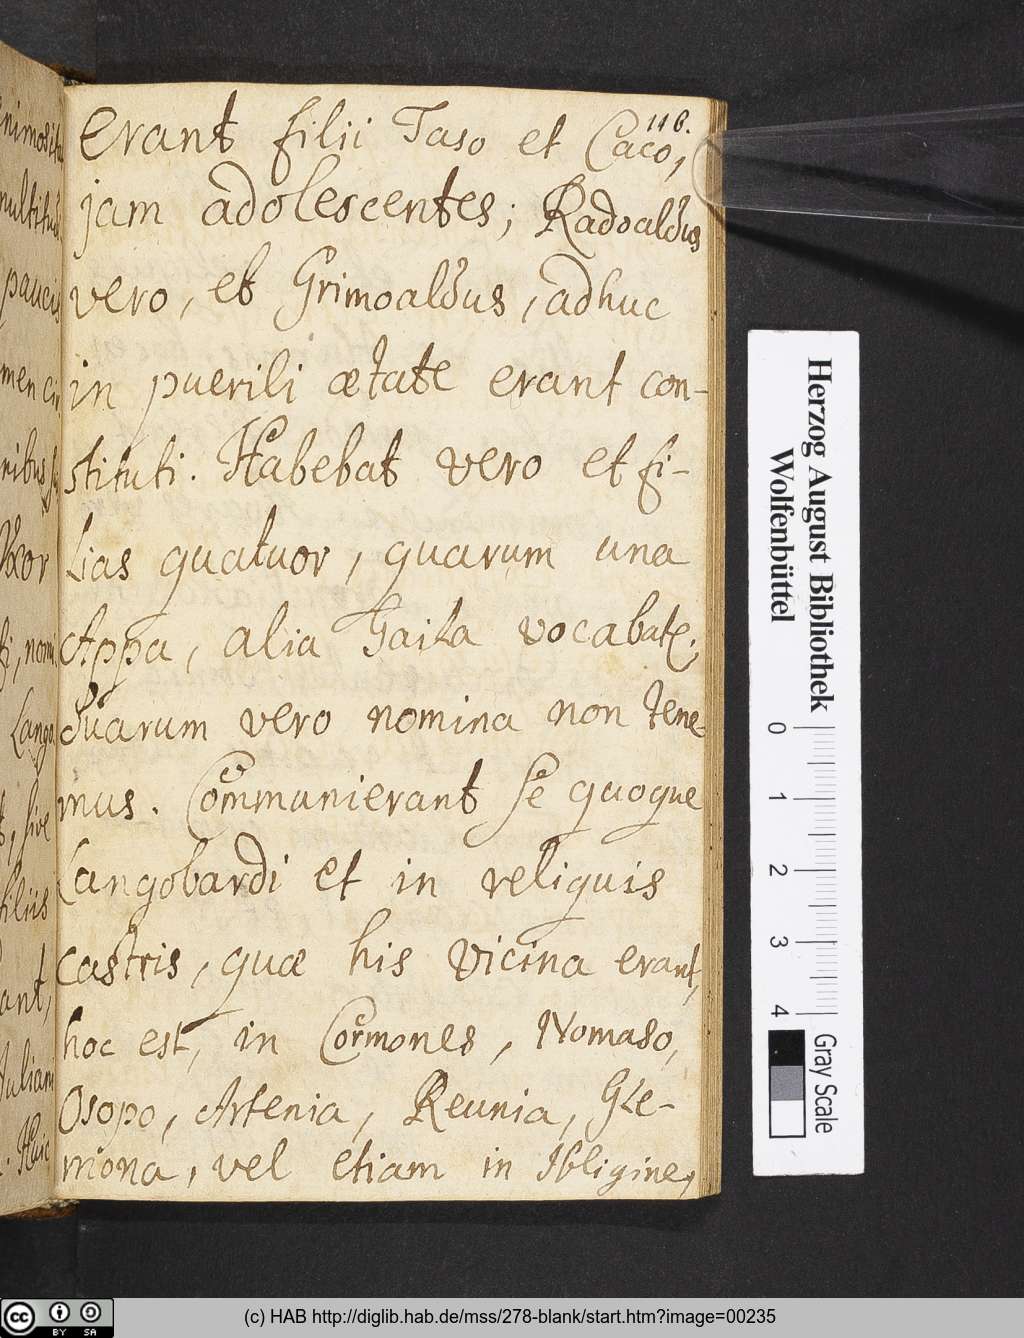 116.
erant filii Taso et Caco,
jam adolescentes; Radoaldus
vero, et Grimoaldus, adhuc
in puerili ætate erant con-
stituti. Habebat vero et fi-
lias quatuor, quarum una
Appa, alia Gaila vocabat&;
duarum vero nomina non tene-
mus. Communierant se quoque
Langobardi et in reliquis
castris, quæ his vicina erant,
hoc est, in Cormones, Nomaso,
Osopo, Artenia, Reunia, Gle-
mona, vel etiam in Ibligine,
nimosita
multitud
paucis
men cir
ribus
Uxor
fi, nomi
Lango
sive
filiis
ant,
Juliam
. Huic
Herzog August Bibliothek
Wolfenbüttel
0 1 2 3 4
Gray Scale
cc BY SA
(c) HAB http://diglib.hab.de/mss/278-blank/start.htm?image=00235